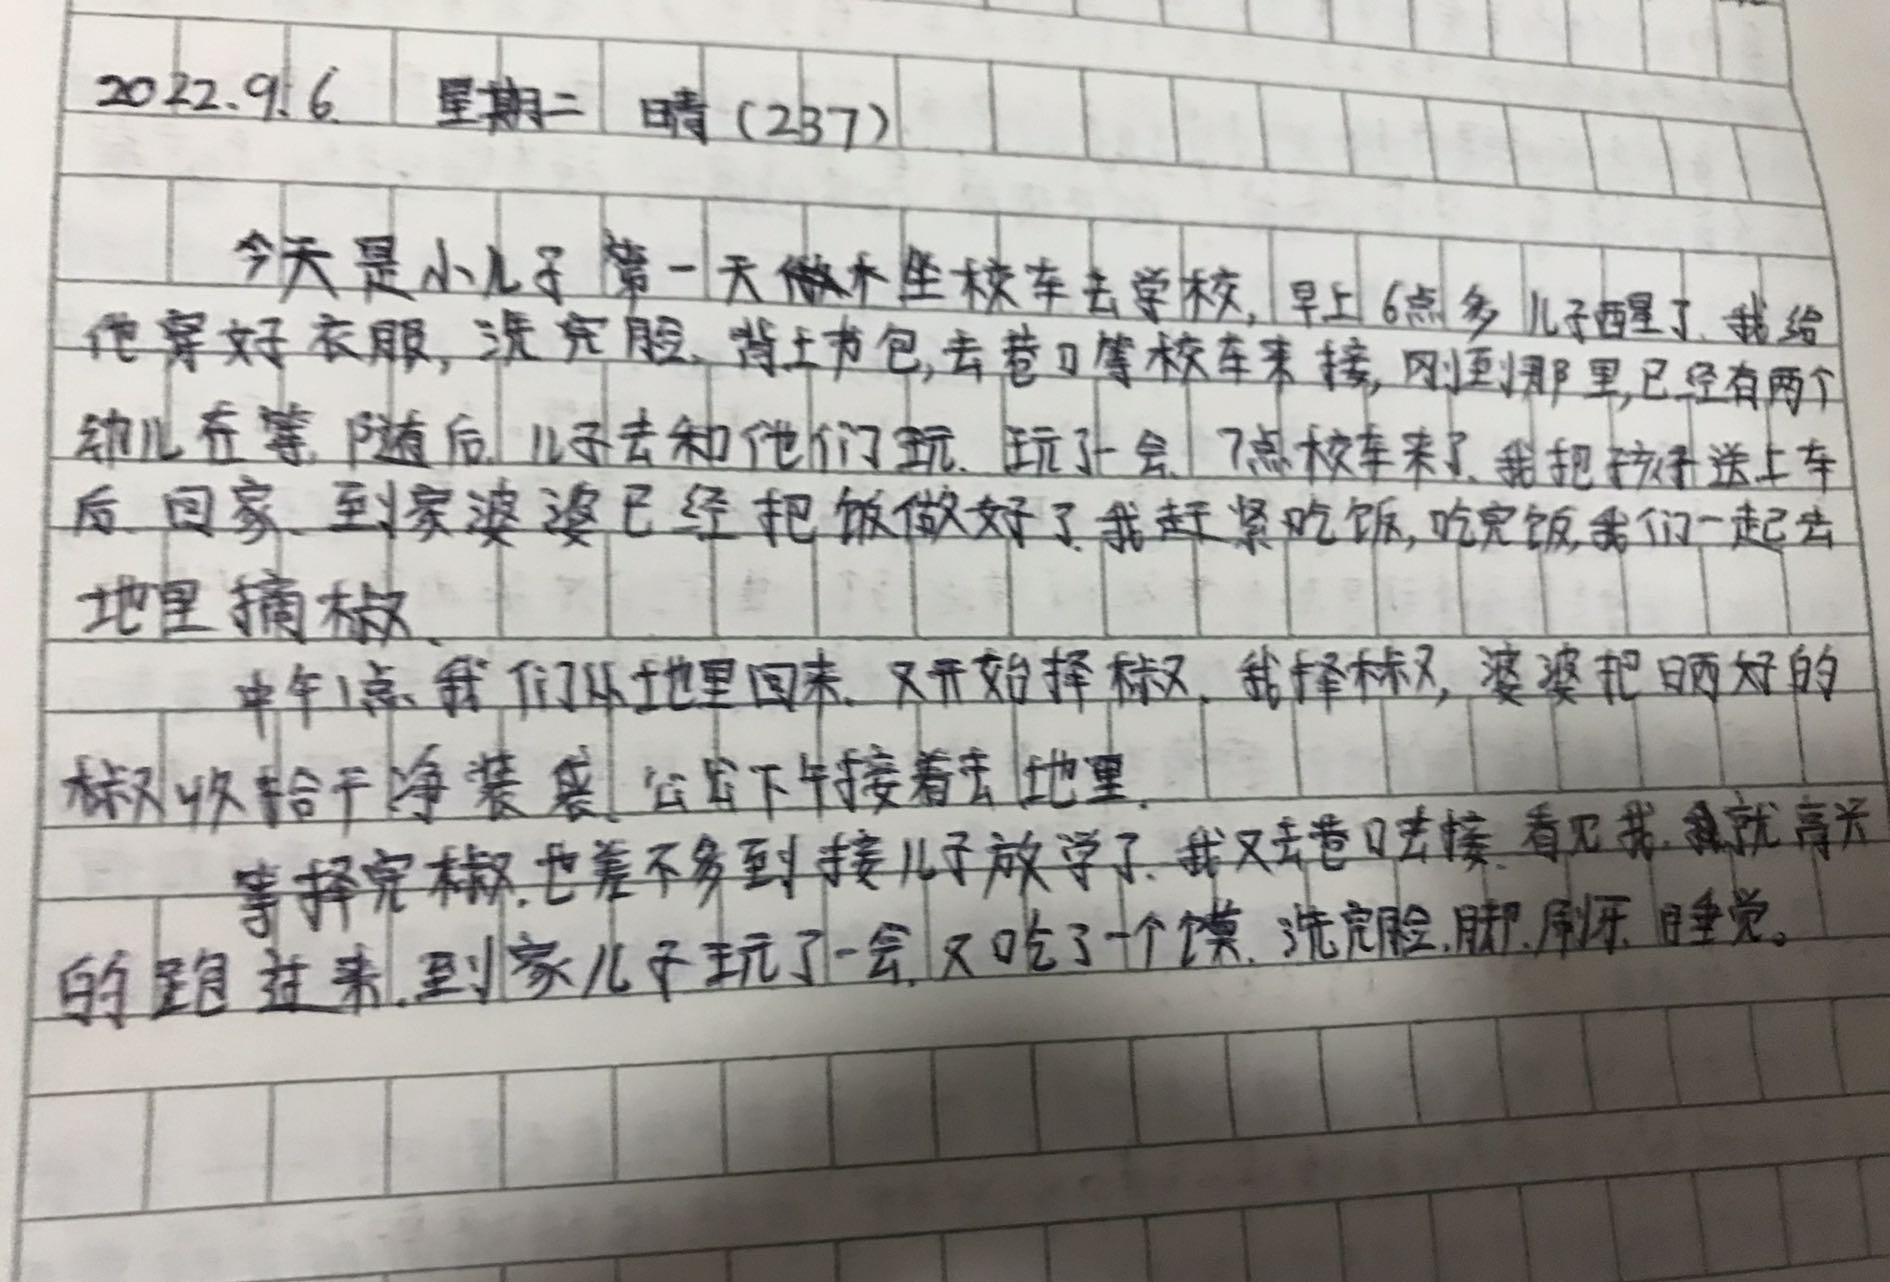 2022.9.6 星期二 晴（237）
今天是小儿子第一天坐校车去学校,早上6点多儿子醒了.我给
他穿好衣服,洗完脸.背上书包,去巷口等校车来接,刚到那里,已经有两个
幼儿在等.随后.儿子去和他们玩.玩了一会.7点校车来了.我把孩子送上车
后.回家.到家婆婆已经把饭做好了.我赶紧吃饭,吃完饭,我们一起去
地里摘椒.
中午1点.我们从地里回来.又开始择椒.我择椒,婆婆把晒好的
椒收拾干净装袋.公公下午接着去地里.
等择完椒.也差不多到接儿子放学了.我又去巷口去接.看见我.就高兴
的跑过来.到家儿子玩了一会.又吃了一个馍.洗完脸.脚.刷牙.睡觉。